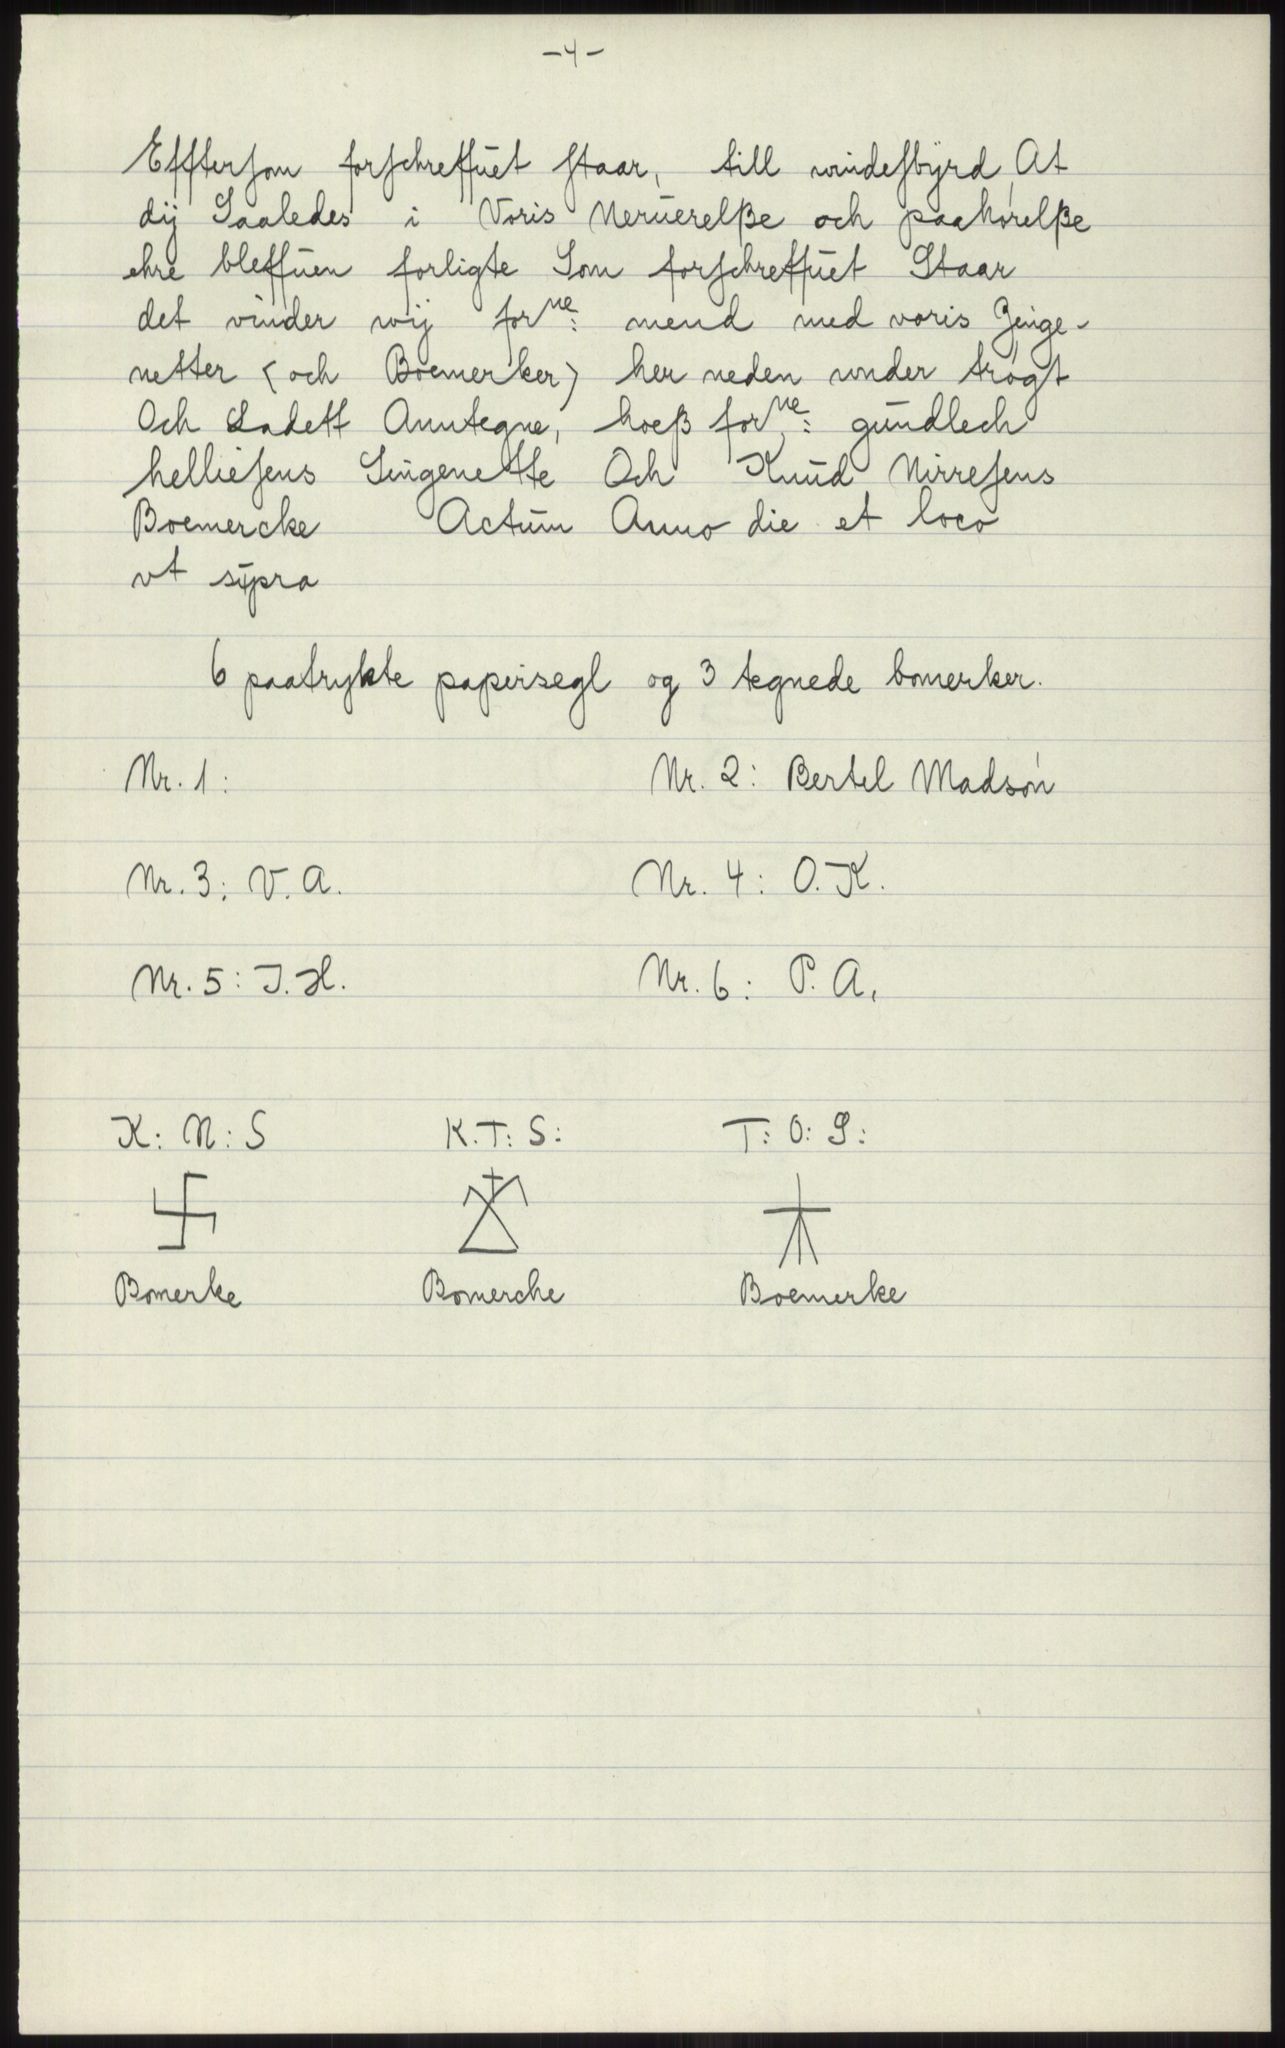 -4-
Effterſom forſchreffuet ſtaar, till vindeſbyrd, At
dij Saaledes i Voris Neruerelße och paahörelße
ehre bleffuen forligte Som forſchreffuet Staar
det vinder wij forne: mend med voris Zinge-
netter (och Boemerker) her neden under trögt
Och Ladett Anntegne, hoeß forne: gundlech
hellieſens Singenette Och Knud Nirreſens
Boemercke Actum Anno die et loco
vt supra
6 paatrykte papirsegl og 3 tegnede bomerker.
Nr. 1: Nr. 2: Bertel Madsøn
Nr. 3: V. A. Nr. 4: O. K.
Nr. 5: J. H. Nr. 6: P. A.
K: N: S K. T: S: T: O: S:
Bomerke Bomercke Boemerke